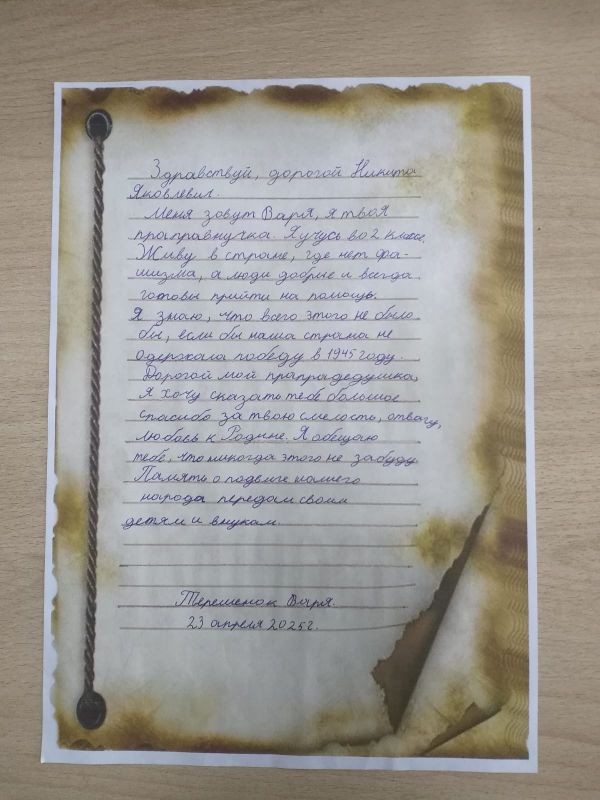 Здравствуй, дорогой Никита
Яковлевич.
Меня зовут Варя, я твоя
праправнучка. Я учусь во 2 классе.
Живу в стране, где нет фа-
шизма, а люди добрые и всегда
готовы прийти на помощь.
Я знаю, что всего этого не было
бы, если бы наша страна не
одержала победу в 1945 году.
Дорогой мой прапрадедушка,
я хочу сказать тебе большое
спасибо за твою смелость, отвагу,
любовь к Родине. Я обещаю
тебе, что никогда этого не забуду.
Память о подвиге нашего
народа передам своим
детям и внукам.
Терешенок Варя.
23 апреля 2025 г.